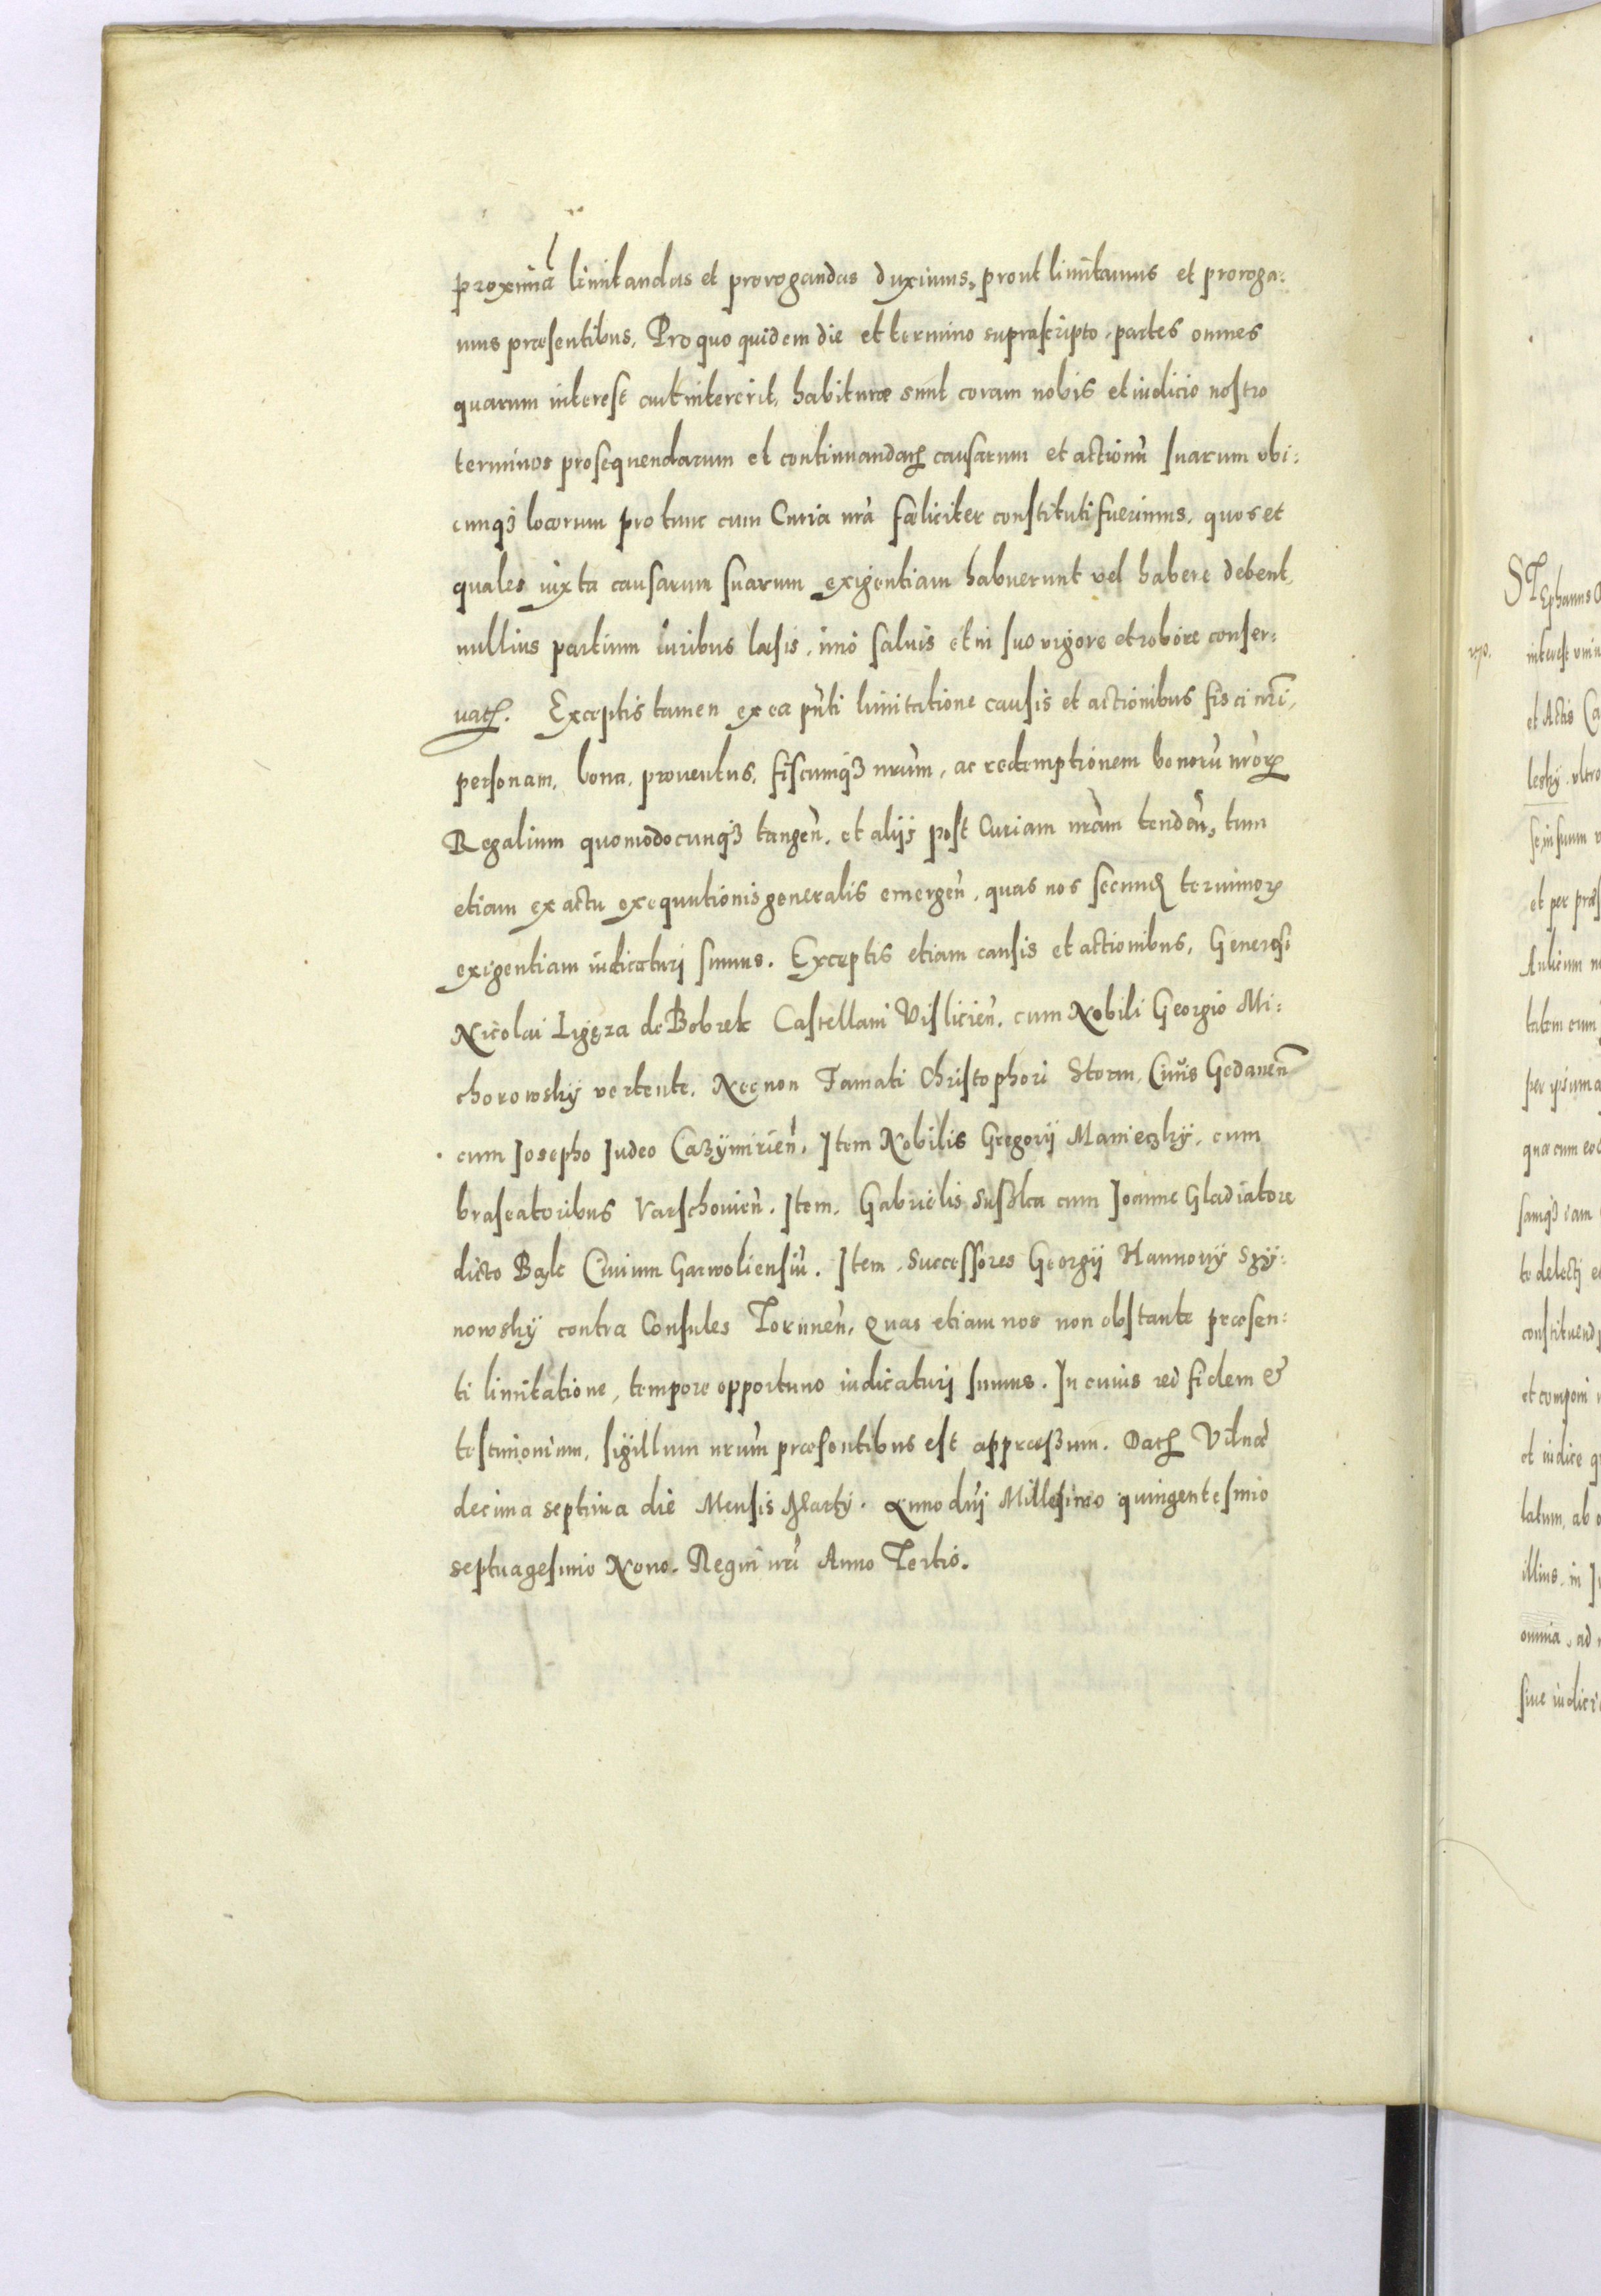 proxima limitandas et prorogandas duximus, prout limitamus et proroga:
mus præsentibus. Pro quo quidem die et termino suprascripto, partes omnes
quarum interest aut intererit, habituræ sunt coram nobis et iudicio nostro
terminos prosequendarum et continuandaꝝ causarum et actionũ suarum ubi:
cunqꝫ locorum pro tunc cum Curia nrã fæliciter constituti fuerimus, quos et
quales iuxta causarum suarum exigentiam habuerunt vel habere debent,
nullius partium iuribus læsis, imo saluis et in suo vigore et robore conser:
uatꝭ. Exceptis tamen ex ea pñti limitatione causis et actionibus fisci nrĩ,
personam, bona, prouentus, fiscumqꝫ nrũm, ac redemptionem bonorũ nrõrꝝ
Regalium quomodocunqꝫ tangeñ. et alijs post Curiam nrãm tendeñ, tum
etiam ex actu exequutionis generalis emergeñ, quas nos secunđ terminorꝝ
exigentiam iudicaturj sumus. Exceptis etiam causis et actionibus, Generosi
Nicolai Ligęza de Bobrek Castellani Vislicień. cum Nobili Georgio Mi:
chorowskÿ vertente. Nec non Famati Christophori Storm, Ciuis Gedaneñ
cum Josepho Judeo Cazÿmirień. Item Nobilis Gregorij Manieczkÿ, cum
braseatoribus Varschouień. Item, Gabrielis Susolka cum Joanne Gladiatore
dicto Bąk Ciuium Garwoliensiũ. Item, Successores Georgij Hannowÿ Szÿ:
nowskÿ contra Consules Toruneñ, Quas etiam nos non obstante præsen:
ti limitatione, tempore opportuno iudicaturj sumus. In cuius rei fidem &
testimonium, sigillum nrũm præsentibus est appræssum. Datꝭ Vilnæ
decima septima die Mensis Martij. Anno dñj Millesimo quingentesimo
septuagesimo Nono. Regni nrĩ Anno Tertio.
STEphanus
interest
et Actis
leskÿ. ultro
se, in suum
et per præs
Aulicum
per ipsum
quæ cum
samqꝫ eam
to delectj
constituend
et componi
et iudice
latum, ab
illius, in
omnia, ad
siue